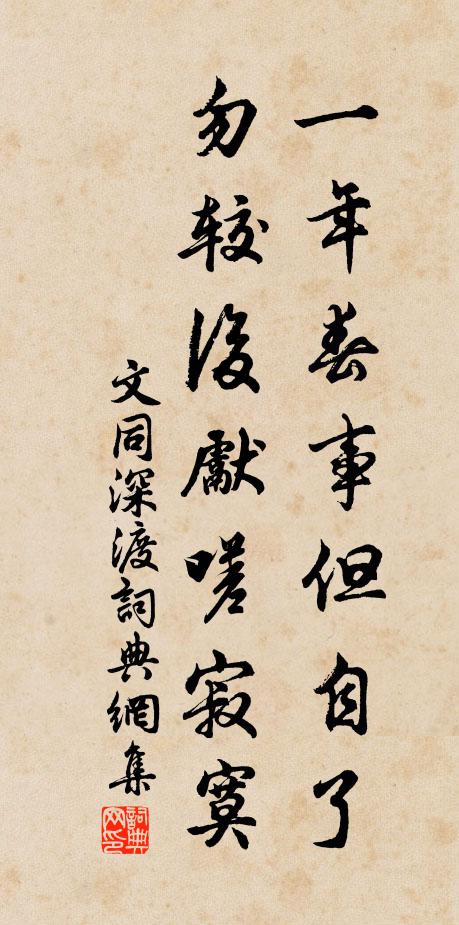 一年春事但自了
勿較後獻嗟寂寞
文同深渡詞典網集
詞典
网印